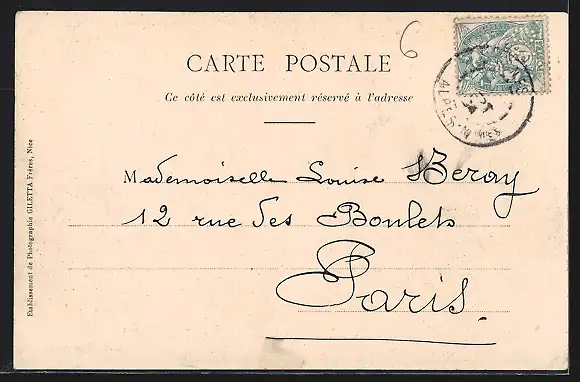 6
CARTE POSTALE
Ce côté est exclusivement réservé à l'adresse
ALPES-MMES
Mademoiselle Louise Beray
12 rue des Boulets
Paris.
Etablissement de Photographie GILETTA Frères, Nice